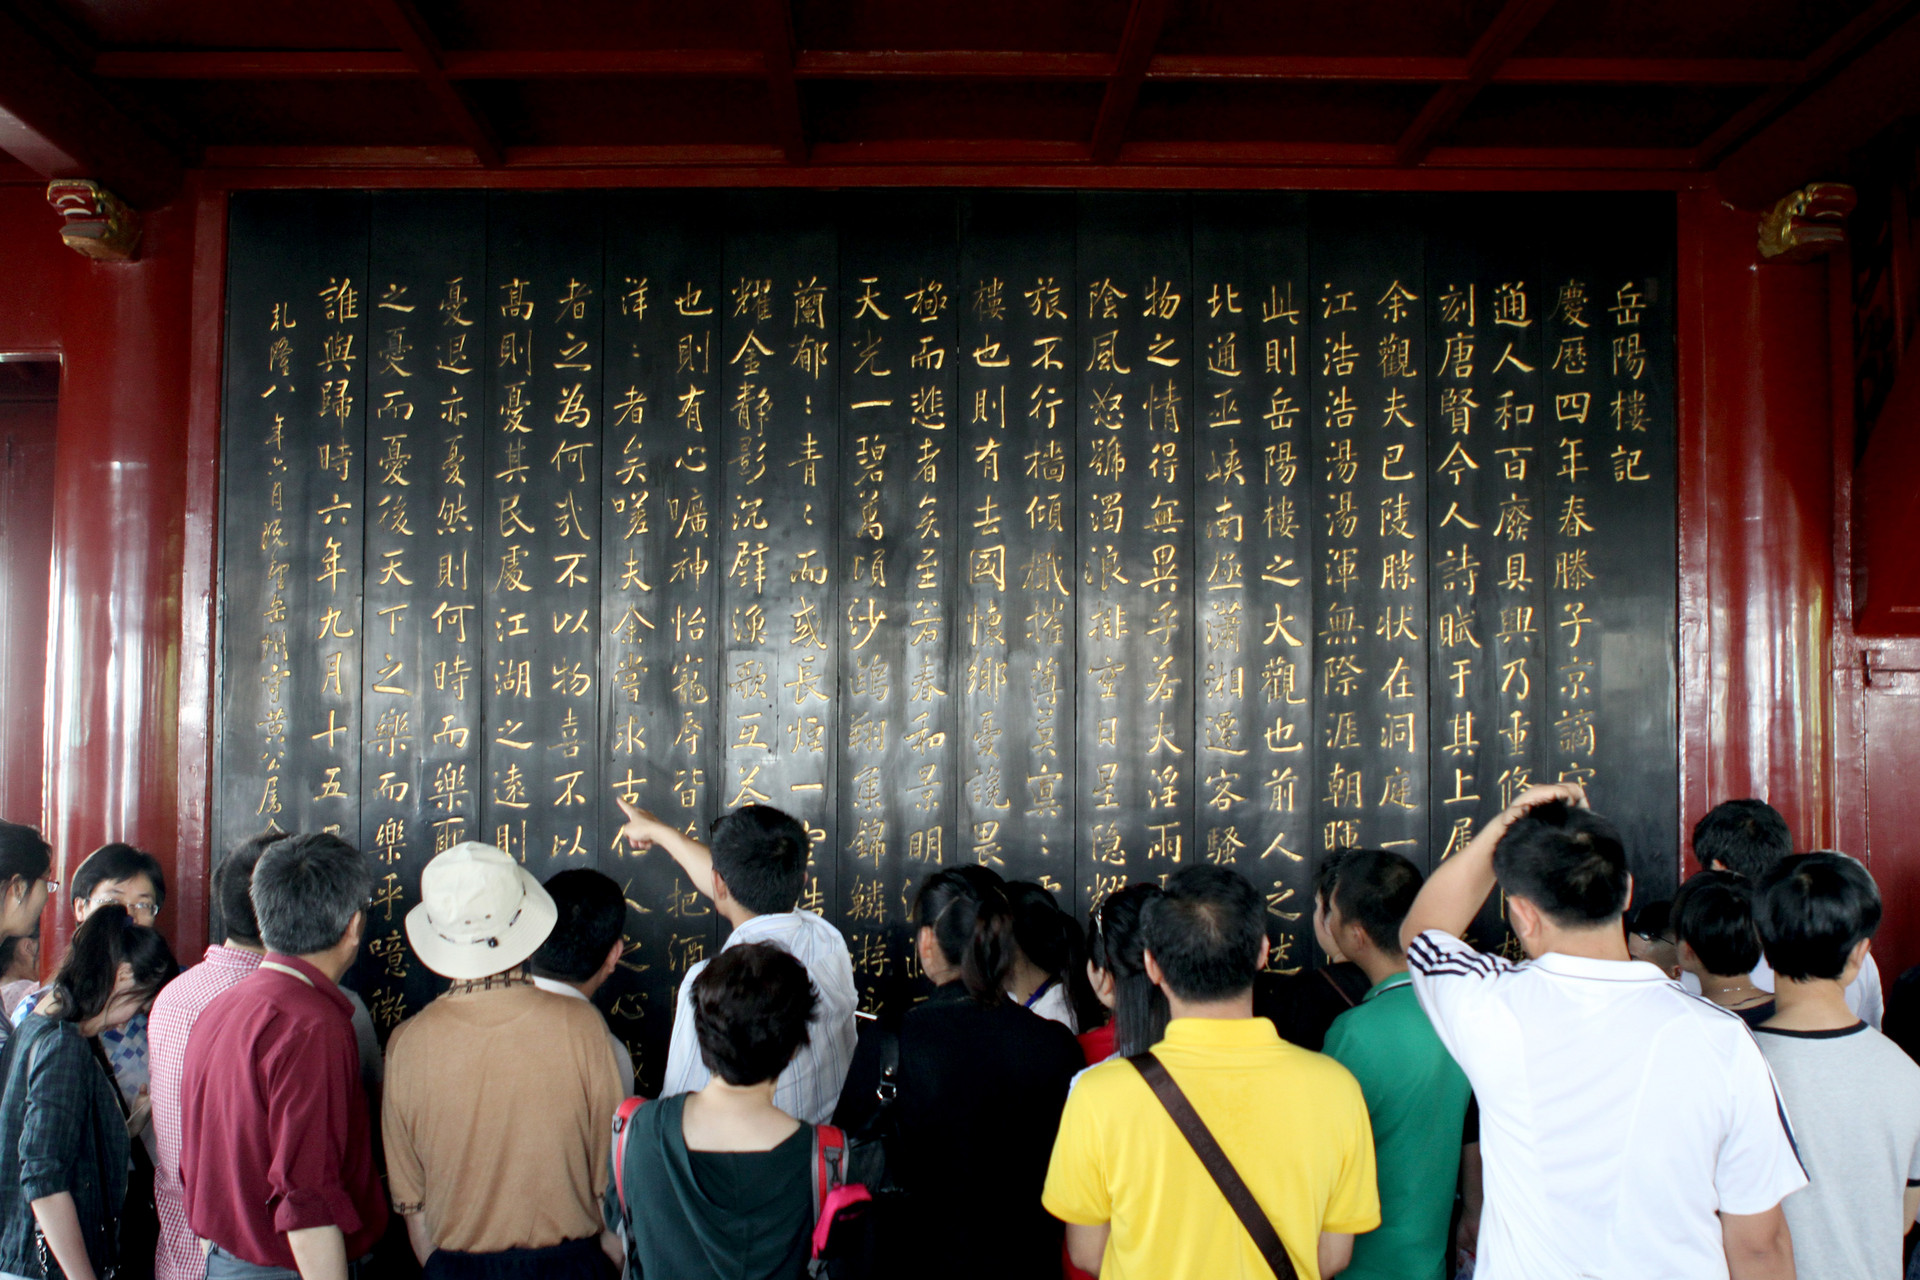 岳陽樓記
慶歷四年春滕子京謫守
通人和百廢具興乃重修
刻唐賢今人詩賦于其上屬
余觀夫巴陵勝狀在洞庭一
江浩浩湯湯渾無際涯朝暉
此則岳陽樓之大觀也前人之述
北通巫峽南極瀟湘遷客騷
物之情得無異乎若夫淫雨
陰風怒號濁浪排空日星隱耀
旅不行檣傾檝摧薄莫冥:
樓也則有去國懷鄉憂讒畏
極而悲者矣至若春和景明
天光一碧萬頃沙鷗翔集錦鱗游泳
蘭郁:青:而或長煙一空皓
耀金靜影沉璧漁歌互荅
也則有心曠神怡寵辱皆 把酒
洋:者矣嗟夫余嘗求古仁人之心或
者之為何㢤不以物喜不以
高則憂其民處江湖之遠則
憂退亦憂然則何時而樂耶
之憂而憂後天下之樂而樂乎噫微
誰與歸時六年九月十五日
乾隆八年六月 岳州守黃公屬